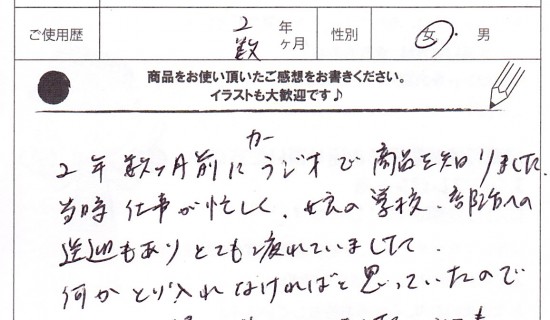 ご使用歴 2 年 数 ヶ月 性別 女・男
商品をお使い頂いたご感想をお書きください。
イラストも大歓迎です♪
カー
2年数ヶ月前にラジオで商品を知りました
当時仕事が忙しく、女衣の学校、部活への
送迎もありとても疲れていましたて
何かとり入れなければと思っていたので